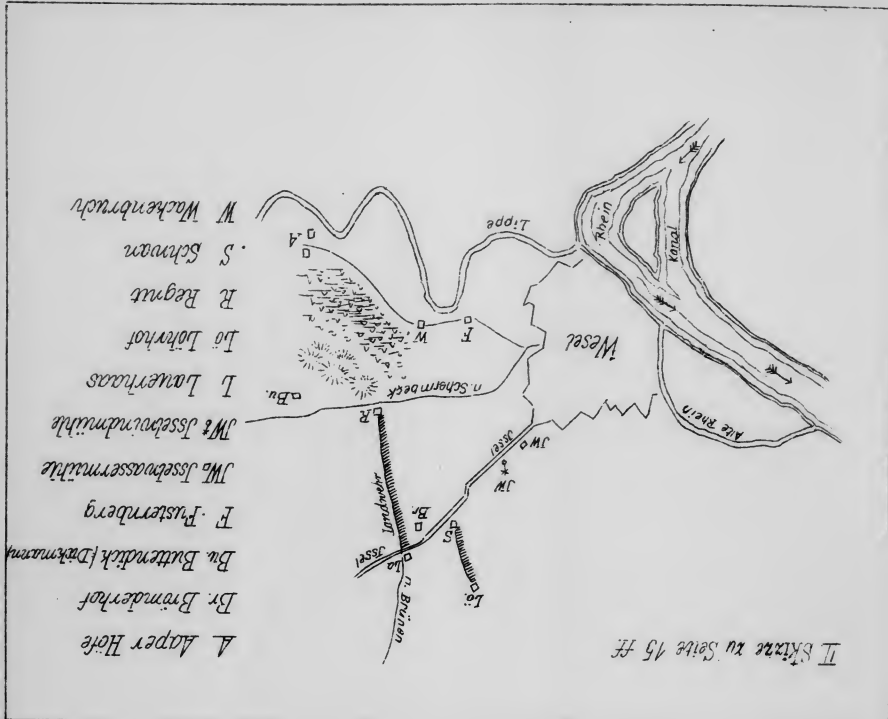 II Skizze zu Seite 15 ff.
A. Aaper Höfe
Br. Brömderhof
Bu. Buttendick
F. Fusternberg
JW Jsselwassermühle
JW Jsselwindmühle
L Lauerhaas
Lö Löhrhof
R Regnit
S. Schwan
W Wackenbruch
Lö.
n. Brünen
La
Jssel
S
Br.
Landwehr
JW
JW
Jssel
R
Bu.
n. Schermbeck
Alte Rhein
Wesel
F
W
Kanal
Rhein
Lippe
A.